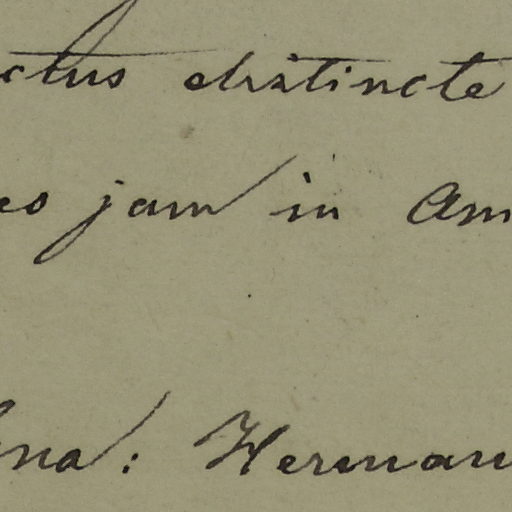 ctus distincte
es jam in Am
na: Herman